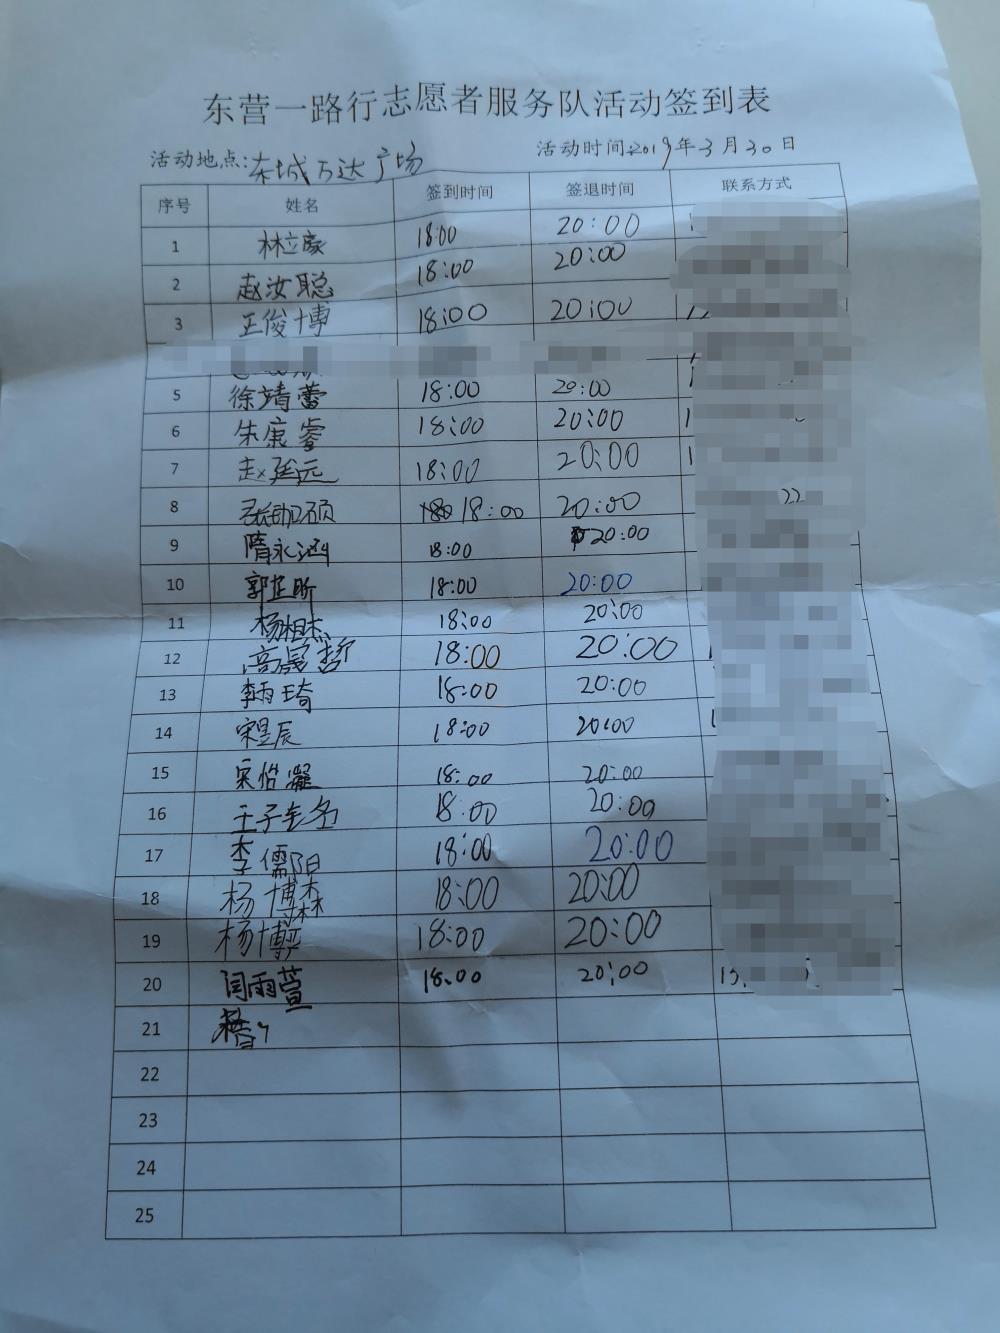 东营一路行志愿者服务队活动签到表
活动地点:东城万达广场 活动时间2019年3月30日
序号 姓名 签到时间 签退时间 联系方式
1 林立豪 18:00 20:00
2 赵汝聪 18:00 20:00
3 王俊博 18:00 20:00
5 徐靖蕾 18:00 20:00
6 朱康睿 18:00 20:00
7 赵延远 18:00 20:00
8 18:00 20:00 22
9 隋永涵 18:00 20:00
10 郭芷昕 18:00 20:00
11 杨相杰 18:00 20:00
12 高晟哲 18:00 20:00
13 李雨琦 18:00 20:00
14 宋昱辰 18:00 20:00
15 18:00 20:00
16 王子 18:00 20:00
17 李儒阳 18:00 20:00
18 杨博森 18:00 20:00
19 杨博 18:00 20:00
20 闫雨萱 18:00 20:00 15
21
22
23
24
25